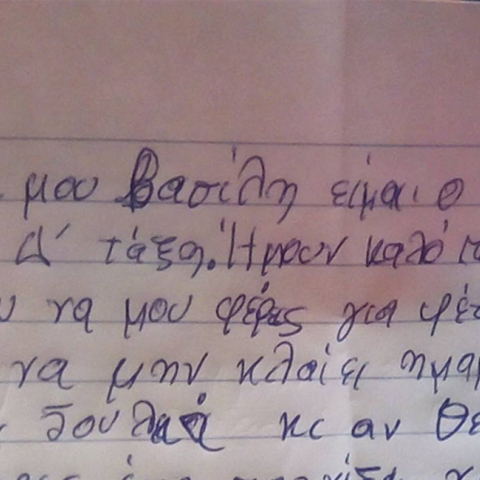 μου Βασίλη είμαι ο
Δ' τάξη. Ήμουν καλό
να μου φέρεις για φέτ
να μην κλαίει η μα
δουλειά κι αν θε
ένα